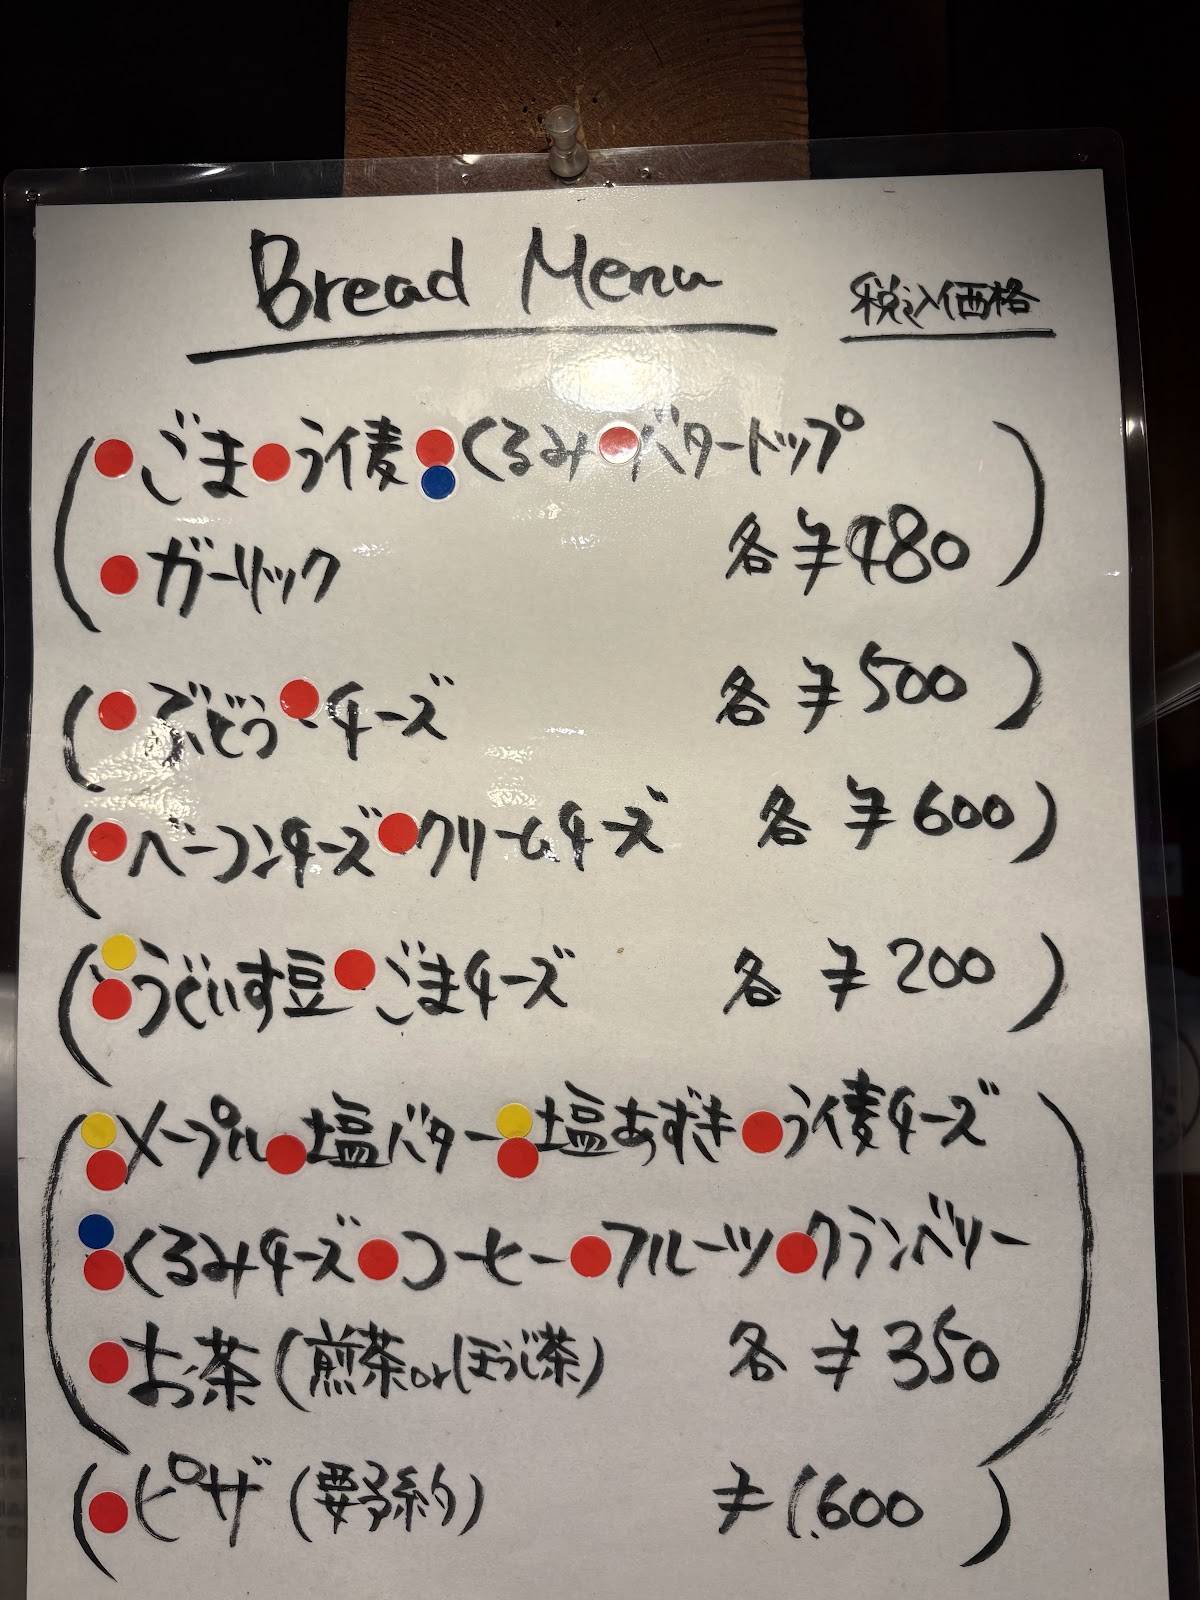 Bread Menu 税込価格
ごま ライ麦 くるみ バタートップ
ガーリック 各¥480
ぶどう チーズ 各¥500
ベーコンチーズ クリームチーズ 各¥600
うぐいす豆 ごまチーズ 各¥200
メープル 塩バター 塩あずき ライ麦チーズ
くるみチーズ コーヒー フルーツ クランベリー
お茶(煎茶orほうじ茶) 各¥350
ピザ(要予約) ¥1.600